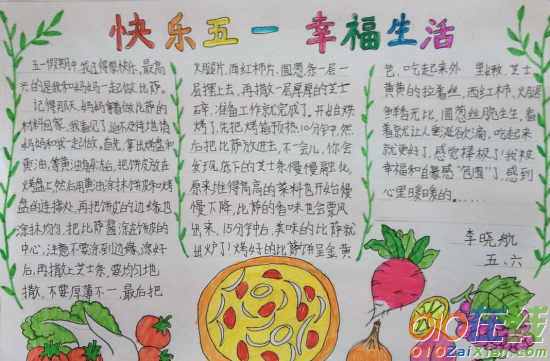 快乐五一 幸福生活
五一假期中,我过得很快乐,最高
兴的是我和妈妈一起做比萨。
记得那天,妈妈拿着做比萨的
材料回家,我看见了,迫不及待地拉
妈妈和我一起做。首先,拿出烤盘和
黄油,等黄油解冻后,把饼皮放在
烤盘上,然后用黄油涂抹饼皮和烤
盘的连接处,再把饼皮的边缘也
涂抹均匀,把比萨酱涂在饼皮的
中心,注意不要涂到边缘,涂好
后,再撒上芝士条,要均匀地
撒,不要厚薄不一,最后把
火腿片、西红柿片、圆葱条一层一
层摆上去,再撒一层厚厚的芝士
碎,准备工作就完成了。开始烘
烤了,先把烤箱预热10分钟,然
后把比萨放进去,不一会儿,你会
发现底下的芝士条慢慢融化,
原来堆得高高的菜料也开始慢
慢下降,比萨的香味也会飘
出来,15分钟后,美味的比萨就
出炉了!烤好的比萨饼呈金黄
色,吃起来外 里软,芝士
黄黄的拉着丝,西红柿、火腿
鲜香无比,圆葱丝脆生生,看
着就让人垂涎欲滴,吃起来
就更好了,感觉棒极了!我被
幸福和自豪感“包围”了,感到
心里暖暖的……
李晓航
五.六
010在线
010zaixian.com